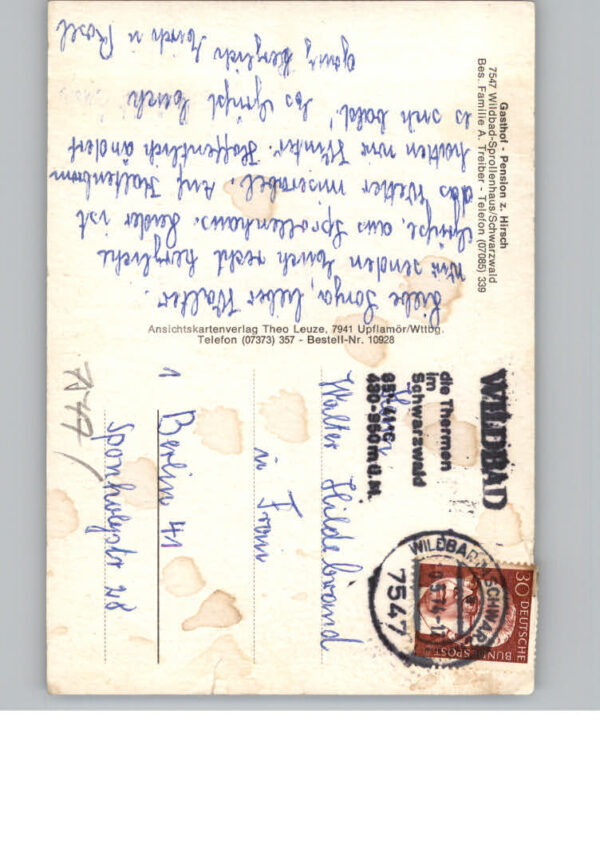 Gasthof - Pension z. Hirsch
7547 Wildbad-Sprollenhaus/Schwarzwald
Bes. Familie A. Treiber - Telefon (07085) 339
Liebe Sonja, lieber Walter.
Wir senden Euch recht herzliche
Grüße, aus Sprollenhaus. Leider ist
das Wetter miserabel. Auf Kaltenbronn
hatten wir Winter. Hoffentlich ändert
es sich bald. Es grüßt Euch
ganz herzlich und Rosel
Ansichtskartenverlag Theo Leuze, 7941 Upflamör/Wttbg.
Telefon (07373) 357 - Bestell-Nr. 10928
WILDBAD
die Thermen
im
Schwarzwald
430-950 m ü. M.
WILDBAD SCHWARZW
7547
30 DEUTSCHE
BUNDESPOST
Walter Hildebrand
u Frau
1 Berlin 41
Sponholzstr 28